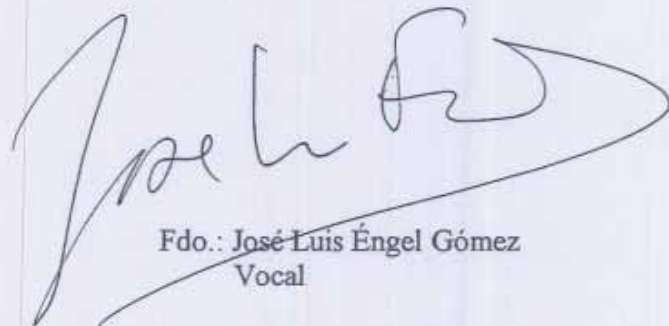 Fdo.: José Luis Éngel Gómez
Vocal